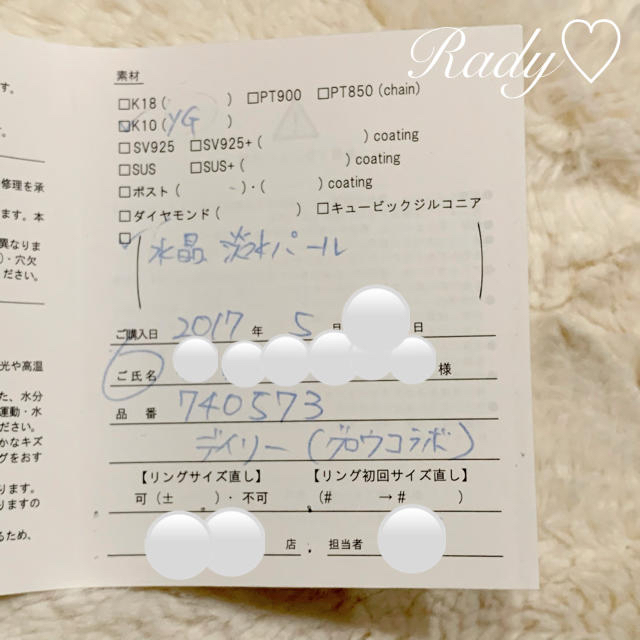 Rady♡
素材
□K18 ( ) □PT900 □PT850 (chain)
☑K10 ( YG )
□SV925 □SV925+ ( ) coating
□SUS □SUS+ ( ) coating
□ポスト ( )・( ) coating
□ダイヤモンド ( ) □キュービックジルコニア
☑
( 水晶 淡水パール )
ご購入日 2017 年 5 月 日
ご氏名 様
品 番 740573
デイリー (グロウコラボ)
【リングサイズ直し】 【リング初回サイズ直し】
可 (± )・不可 (# → # )
店 . 担当者
す。
す。
修理を承
ます。本
異なりま
)・穴欠
ださい。
光や高温
た、水分
運動・水
ださい。
かなキズ
グをおす
ります。
りますの
るため、